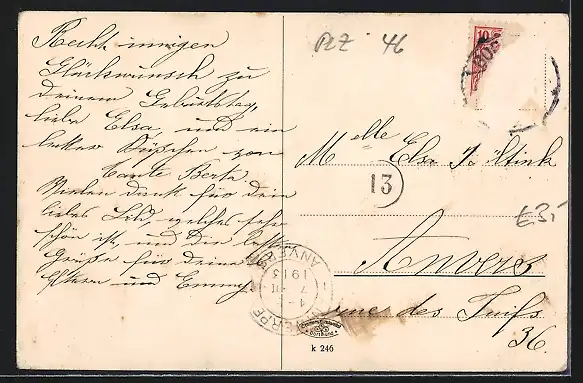 Recht innigen
Glückwunsch zu
deinem Geburtstag,
liebe Elsa, und ein
Küsschen von
Tante Berta
Vielen Dank für dein
liebes Bild, welches sehr
schön ist, und die besten
Grüße für deine
Eltern und Emmy
PLZ 46
10
Melle Elsa
13
£3,-
Anvers
rue des Juifs
36.
ANVERS
1913
k 246